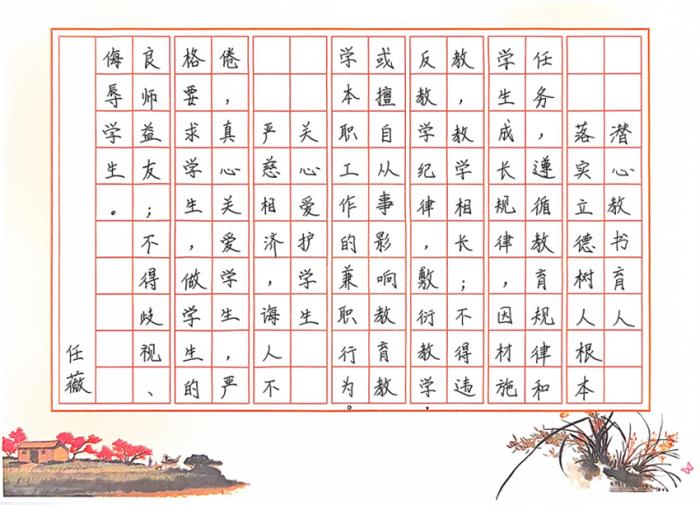 潜心教书育人
落实立德树人根本
任务，遵循教育规律和
学生成长规律，因材施
教，教学相长；不得违
反教学纪律，敷衍教学，
或擅自从事影响教育教
学本职工作的兼职行为。
关心爱护学生
严慈相济，诲人不
倦，真心关爱学生，严
格要求学生，做学生的
良师益友；不得歧视、
侮辱学生。
任薇